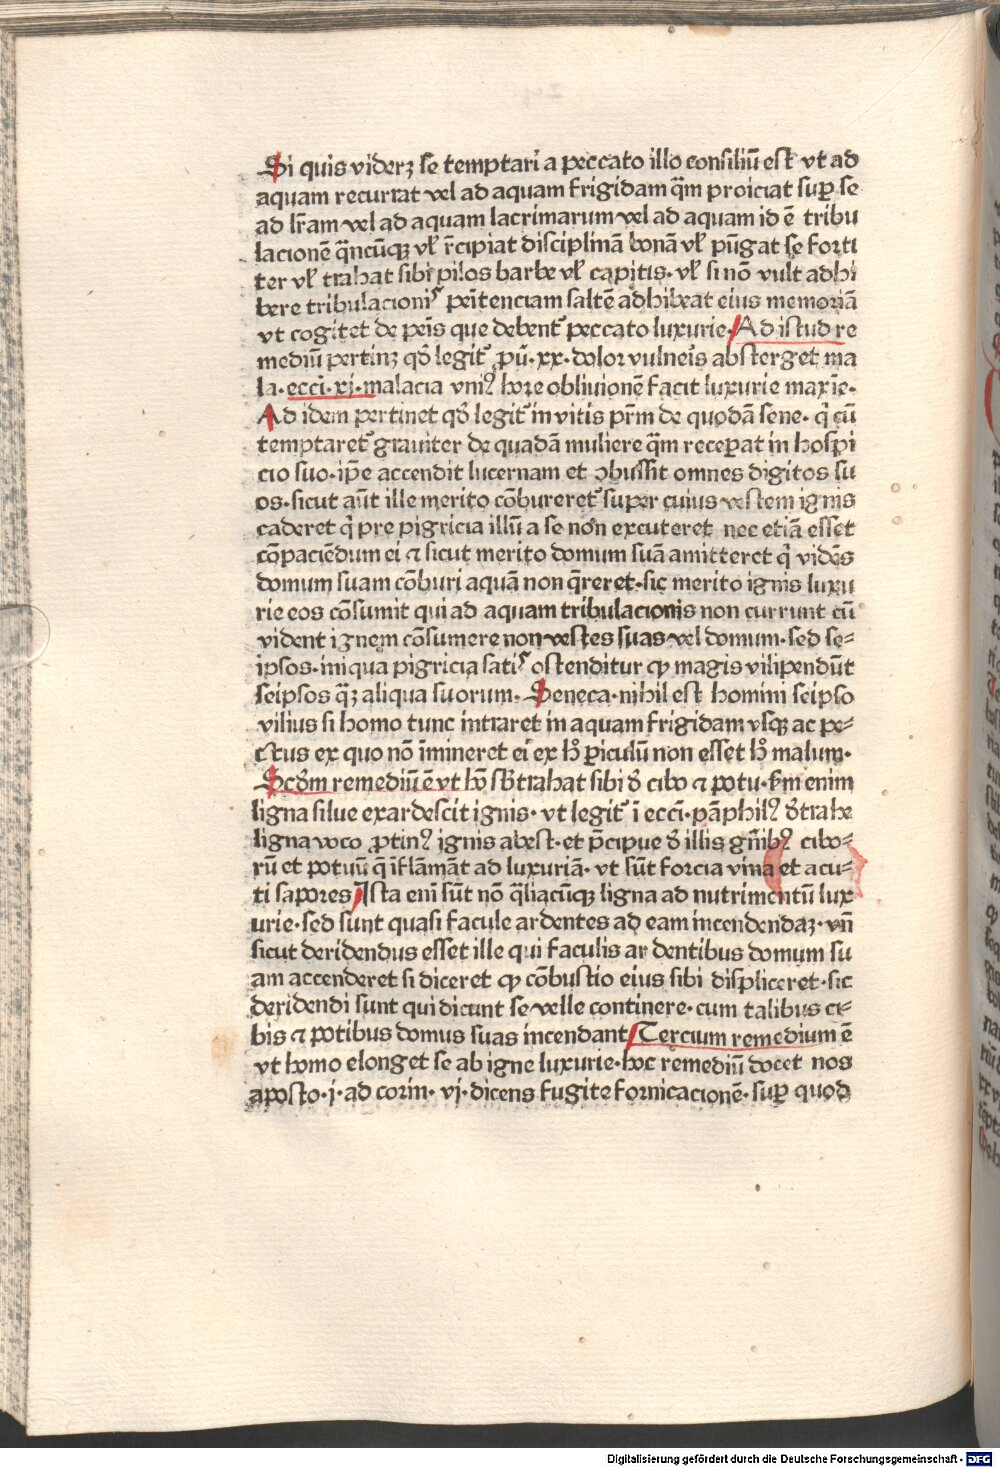 Si quis viderꝫ se temptari a peccato illo consiliū est vt ad
aquam recurrat vel ad aquam frigidam q̄m proiciat suꝑ se
ad lr̄am vel ad aquam lacrimarum vel ad aquam id ē tribu
lacionē q̄ncūcꝫ vl̕ r̄cipiat disciplinā bonā vl̕ pūgat se forti
ter vl̕ trahat sibi pilos barbe vl̕ capitis· vl̕ si nō vult adhi
bere tribulacionis penitenciam saltē adhibeat eius memoriā
vt cogitet de penis que debent᷑ peccato luxurie· Ad istud re
mediū pertinꝫ qd̕ legit᷑ ꝓū· xx· dolor vulneris absterget ma
la· ecci· xi· malacia vniꝰ hore obliuionē facit luxurie maxīe·
Ad idem pertinet qd̕ legit᷑ in vitis pr̄m de quodā sene· q̇ cū
temptaret᷑ grauiter de quadā muliere q̄m receꝑat in hospi
cio suo· ip̄e accendit lucernam et ꝯbussit omnes digitos su
os· sicut aūt ille merito cōbureret᷑ super cuius vestem ignis
caderet q̇ pre pigricia illū a se non excuteret nec etiā esset
cōpaciendum ei ⁊ sicut merito domum suā amitteret q̇ vidēs
domum suam cōburi aquā non q̄reret· sic merito ignis luxu
rie eos cōsumit qui ad aquam tribulacionis non currunt cū
vident ignem cōsumere non vestes suas vel domum· sed se⸗
ipsos· iniqua pigricia satis ostenditur ꝙ magis vilipendūt
seipsos q̄ꝫ aliqua suorum· Seneca· nihil est homini seipso
vilius si homo tunc intraret in aquam frigidam vsqꝫ ac pe⸗
ctus ex quo nō īmineret ei ex h̕ ꝑiculū non esset h̕ malum·
Scd̕m remediū ē vt hō sb̕trahat sibi d̕ cibo ⁊ potu· ẜm enim
ligna silue exardescit ignis· vt legit᷑ ī ecci· pāphilꝰ d̕trahe
ligna voco ꝓtinꝰ ignis abest· et p̄cipue d̕ illis gn̄ibꝰ cibo⸗
rū et potuū q̄ īflāmāt ad luxuriā· vt sūt forcia vina et acu⸗
ti sapores Ista eni sūt nō q̄liacūqꝫ ligna ad nutrimentū lux
urie· sed sunt quasi facule ardentes ad eam incendendaꝫ· vn̄
sicut deridendus esset ille qui faculis ar dentibus domum su
am accenderet si diceret ꝙ cōbustio eius sibi displiceret· sic
deridendi sunt qui dicunt se velle continere· cum talibus ci⸗
bis ⁊ potibus domus suas incendant Tercium remedium ē
vt homo elonget se ab igne luxurie· hoc remediū docet nos
aposto· j· ad corin· vj· dicens fugite fornicacionē· suꝑ quod
Digitalisierung gefördert durch die Deutsche Forschungsgemeinschaft - DFG